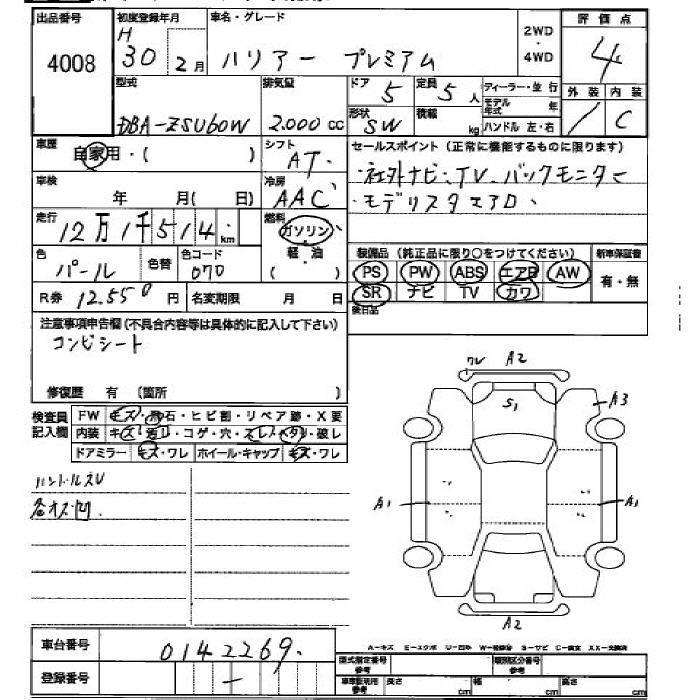 出品番号 初度登録年月 車名・グレード 2WD ・ 4WD 評価点
4008 H 30年 2月 ハリアー プレミアム 4
型式 排気量 ドア 定員 ディーラー・並行 外装 内装
DBA-ZSU60W 2.000 cc 5 5人 モデル年式 年 / C
形状 SW 積載 kg ハンドル 左・右
車歴 自家用・( ) シフト AT セールスポイント(正常に機能するものに限ります)
車検 年 月(日) 冷房 AAC ・社外ナビ、TV、バックモニター
・モデリスタエアロ、
走行 12万1千514 km 燃料 ガソリン・軽・油 ( )
色 パール 色替 色コード 070
装備品(純正品に限り○をつけてください) 新車保証書
PS PW ABS エアB AW 有・無
SR ナビ TV カワ
R券 12.550円 名変期限 月 日
後日品
注意事項申告欄(不具合内容等は具体的に記入して下さい)
コンビシート
修復歴 有 〔箇所 〕
検査員記入欄 FW キズ・飛石・ヒビ割・リペア跡・X要
内装 キズ・汚れ・コゲ・穴・スレ・ヘタリ・破レ
ドアミラー キズ・ワレ ホイール・キャップ キズ・ワレ
ハンドルスレ
各オス凹
ワレ A2
S1
A3
A1
A1
A2
A-キズ E-エクボ U-凹み W-補修跡 S-サビ C-腐食 XX-交換済
車台番号 0142269.
登録番号 -
型式指定番号 参考 類別区分番号 参考
車庫証明用 参考 長さ cm 幅 cm 高さ cm